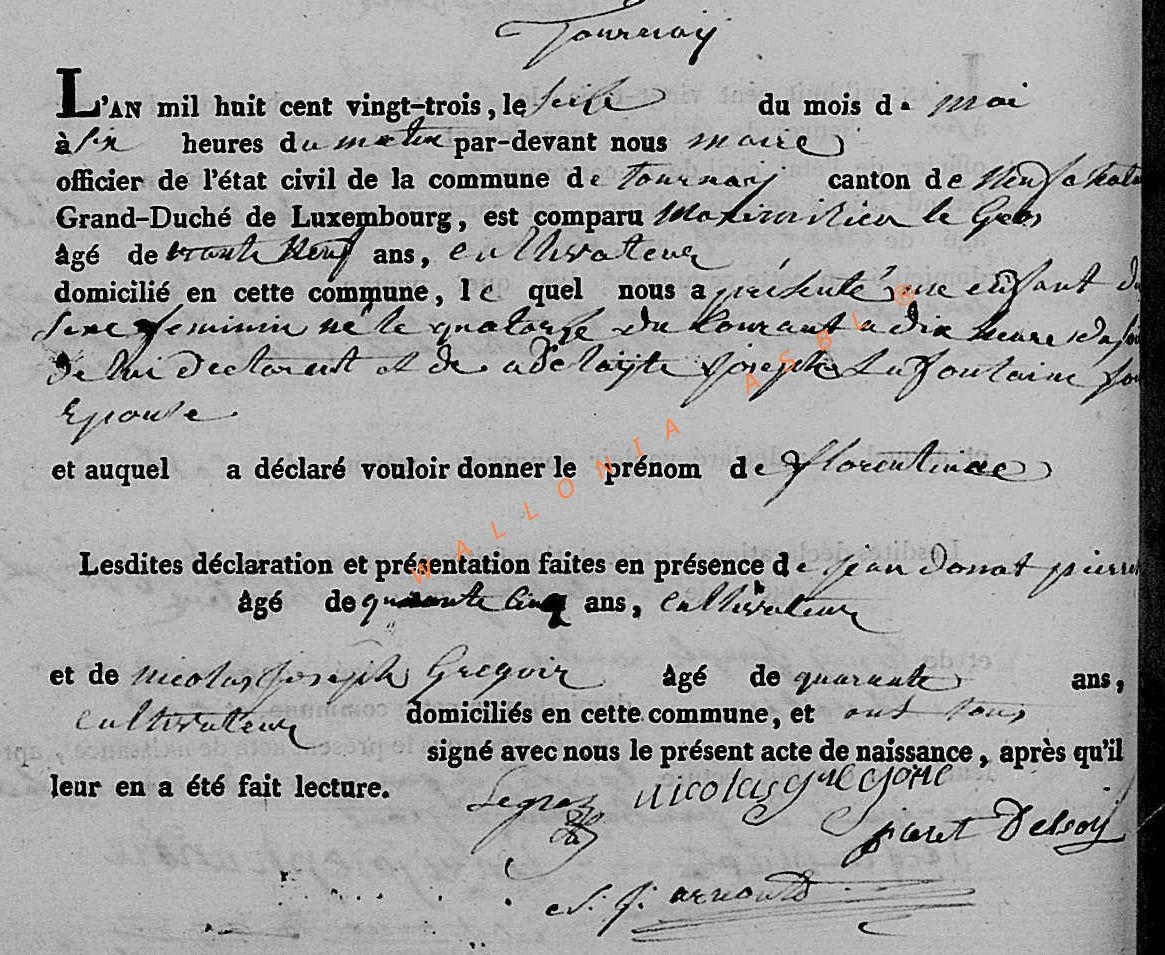 Tournay
L'AN mil huit cent vingt-trois, le seise du mois de mai
à six heures du matin par-devant nous maire
officier de l'état civil de la commune de tournay canton de Neufchatea
Grand-Duché de Luxembourg, est comparu Maximilien le Gros
âgé de trente Neuf ans, cultivateur
domicilié en cette commune, le quel nous a présenté une enfant du
sexe feminin né le quatorse du Courant a dix heures du soi
de lui declarent et de adelayte Joseph La fontaine so
Epouse
et auquel a déclaré vouloir donner le prénom de florentine
Lesdites déclaration et présentation faites en présence de jean donat pierret
âgé de quarante Cinq ans, cultivateur
et de nicolas Joseph Gregoir âgé de quarante ans,
cultivateur domiciliés en cette commune, et ont tous
signé avec nous le présent acte de naissance, après qu'il
leur en a été fait lecture.
Legros nicolas gregoire
piaret Delsoy
arnould
WALLONIA ASBL ®